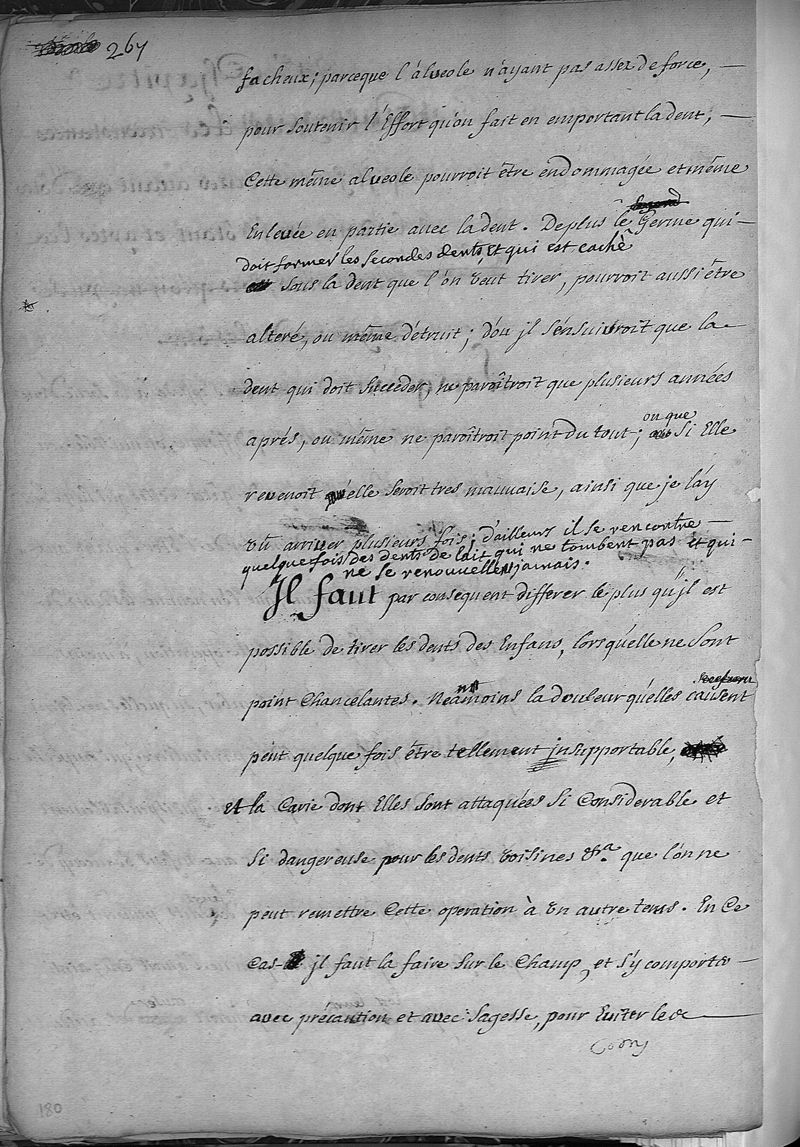 267
facheux; parceque l'alueole n'ayant pas assez de force, —
pour soutenir l'Effort qu'on fait en emportant la dent, —
Cette même alueole pourroit être endommagée et même
Enleuée en partie avec la dent. Deplus le Germe qui -
doit former les secondes dents, et qui est caché
sous la dent que l'on veut tirer, pourroit aussi être
alteré, ou même détruit; d'ou jl s'ensuivroit que la
dent qui doit succeder, ne paroîtroit que plusieurs années
aprés, ou même ne paroîtroit point du tout; ou que si Elle
reuenoit elle seroit tres mauvaise, ainsi que je l'ay
vû arriuer plusieurs fois; d'ailleurs il se rencontre —
quelque fois des dents de lait qui ne tombent pas et qui -
ne se renouvellent jamais.
Jl faut par consequent differer le plus qu'jl est
possible de tirer les dents des Enfans, lorsqu'elle ne sont
point Chancelantes. Neanmoins la douleur qu'elles causent
peut quelque fois être tellement jnsupportable,
et la Carie dont Elles sont attaquées si Considerable et
si dangereuse pour les dents voisines &ca. que l'on ne
peut remettre Cette operation à vn autre tems. En Ce
Cas - jl faut la faire sur le Champ, et s'y comporter —
avec précaution et avec sagesse, pour Euiter le
180